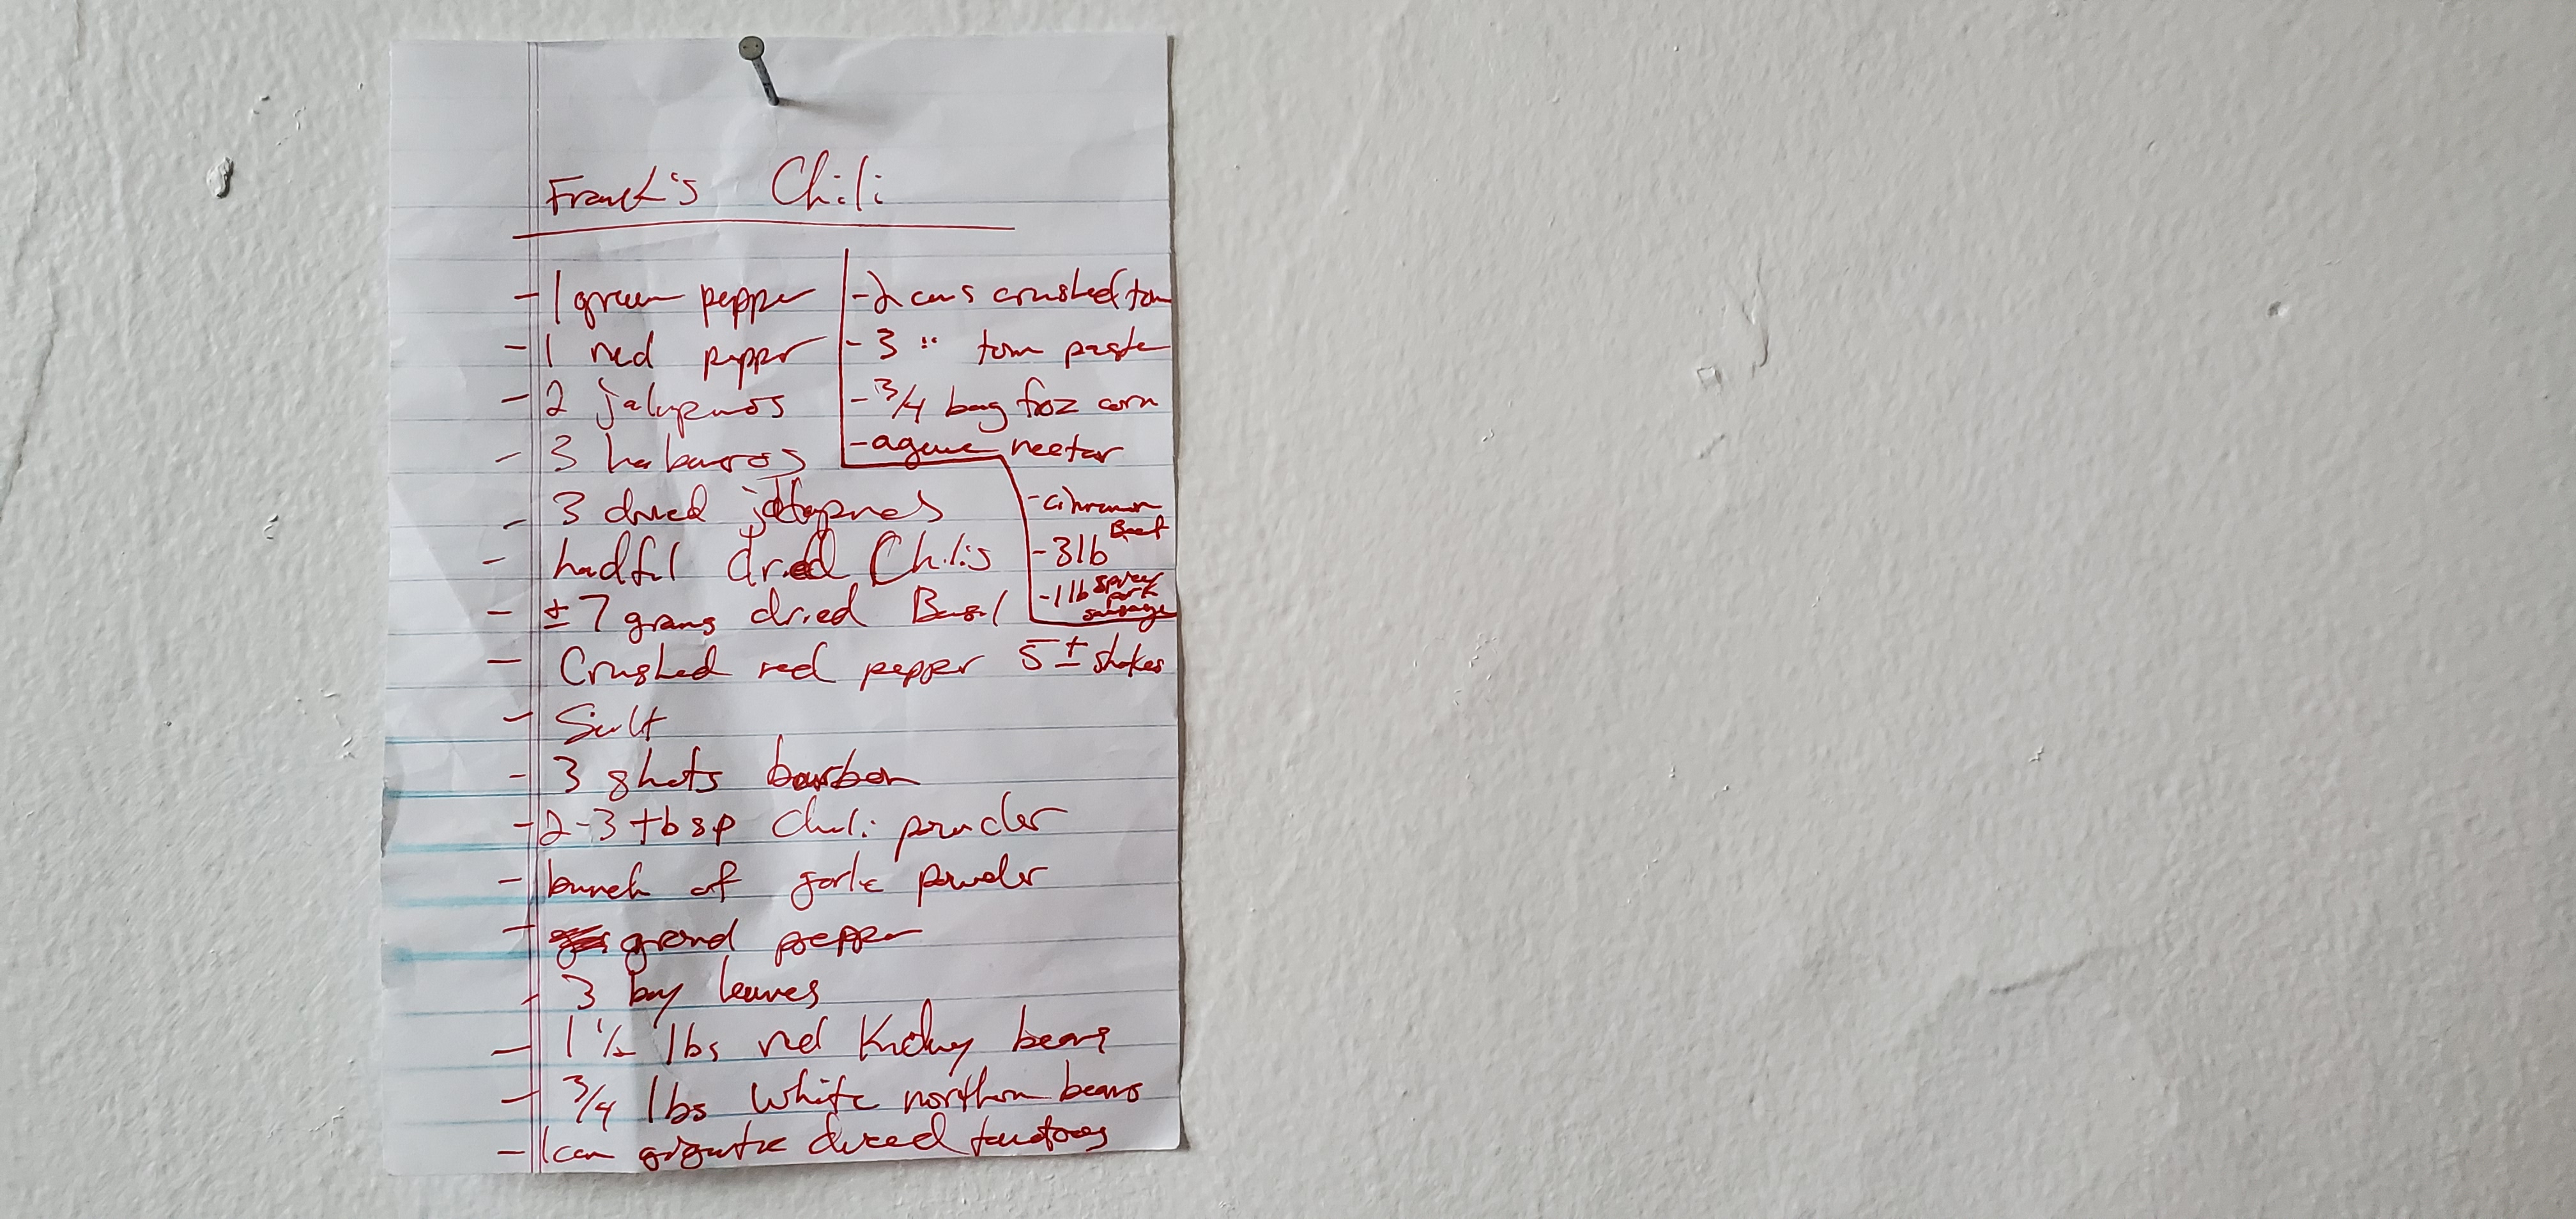 Frank's Chili
- 1 green pepper
- 1 red pepper
- 2 jalapenos
- 3 habaneros
- 3 dried jalapnes
- hadful dried Chilis
- ± 7 grams dried Basil
- Crushed red pepper 5 ± shakes
- Salt
- 3 shots bourbon
- 2-3 tbsp chili powder
- bunch of garlic powder
- grond pepper
- 3 bay leaves
- 1 1/2 lbs red Kidney beans
- 3/4 lbs White northern beans
- 1 can gigantic diced tomatoes
- 2 cans crushed tom
- 3 " tom paste
- 3/4 bag froz corn
- agave nectar
- cinnamon
- 3lb Beef
- 1lb spicy pork sausage